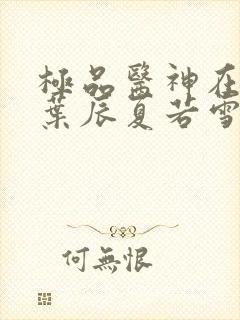 極品醫神在
葉辰夏若雪
何無恨